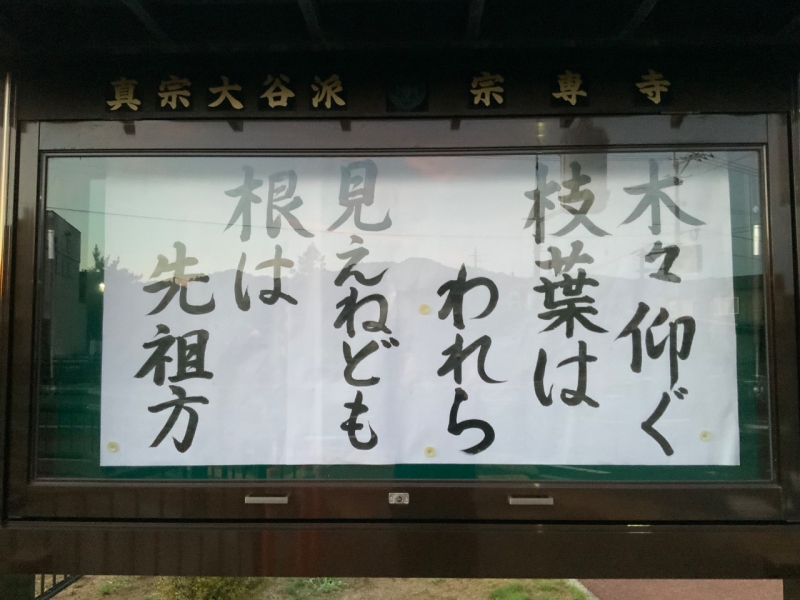 真宗大谷派 宗専寺
木々仰ぐ
枝葉は
われら
見えねども
根は
先祖方